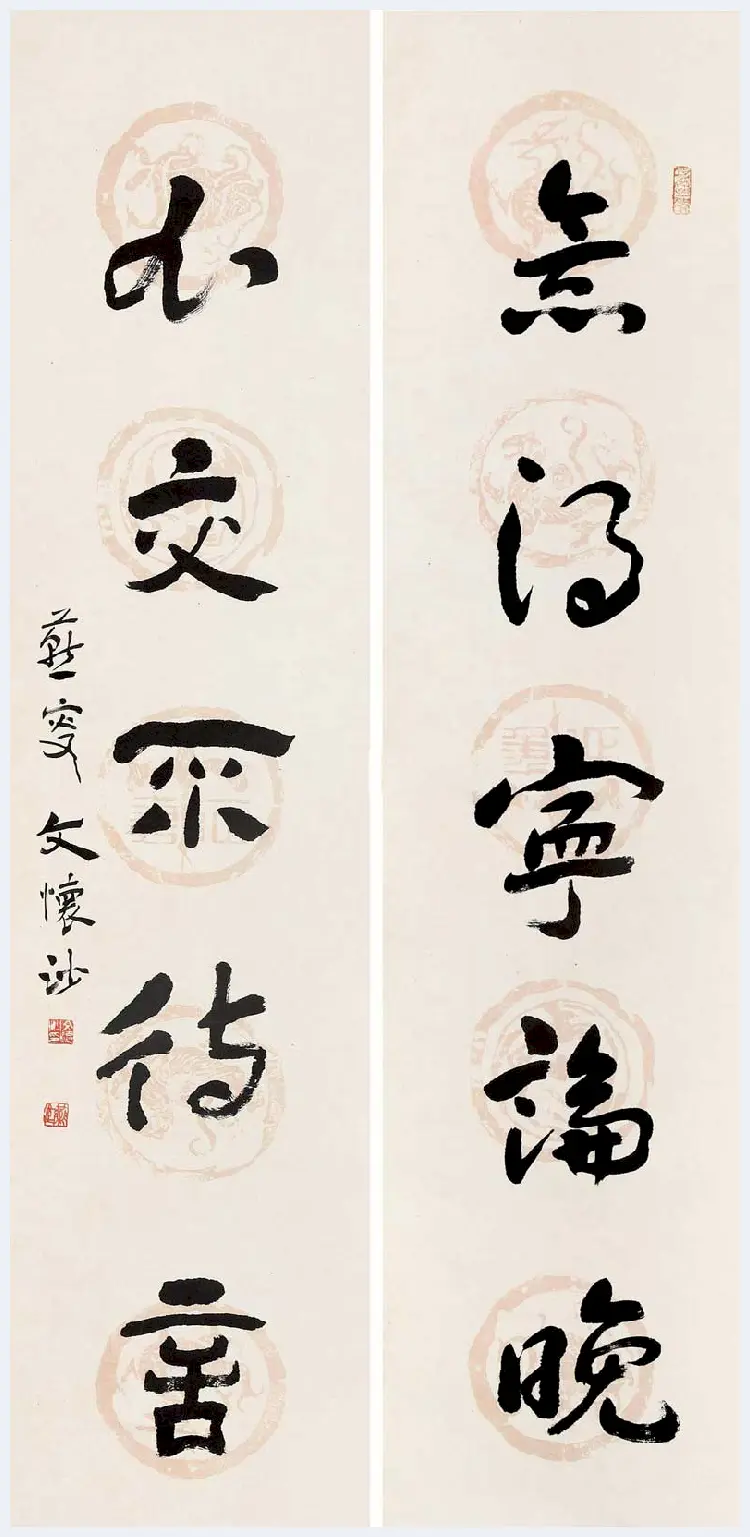 得寧論晚
心交不待言
燕叟 文懷沙